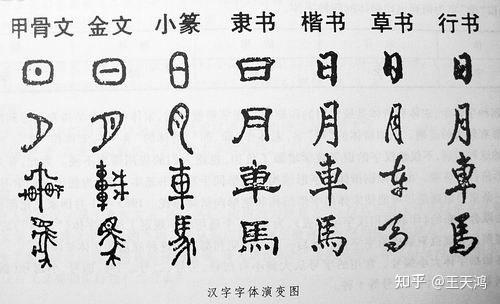 甲骨文 金文 小篆 隶书 楷书 草书 行书
日 日 日 日 日 日 日
月 月 月 月 月 月 月
車 車 車 車 車 車 車
馬 馬 馬 馬 馬 馬 馬
汉字字体演变图
知乎 @王天鸿